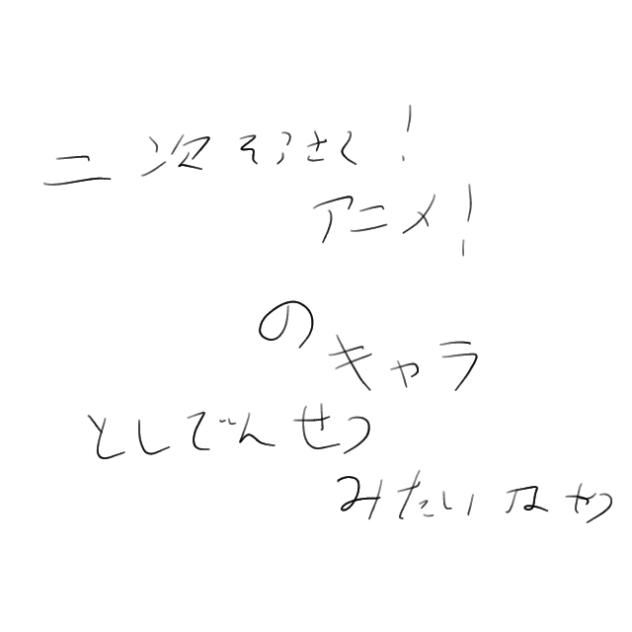 二次そうさく!
アニメ!
のキャラ
としでんせつ
みたいなやつ